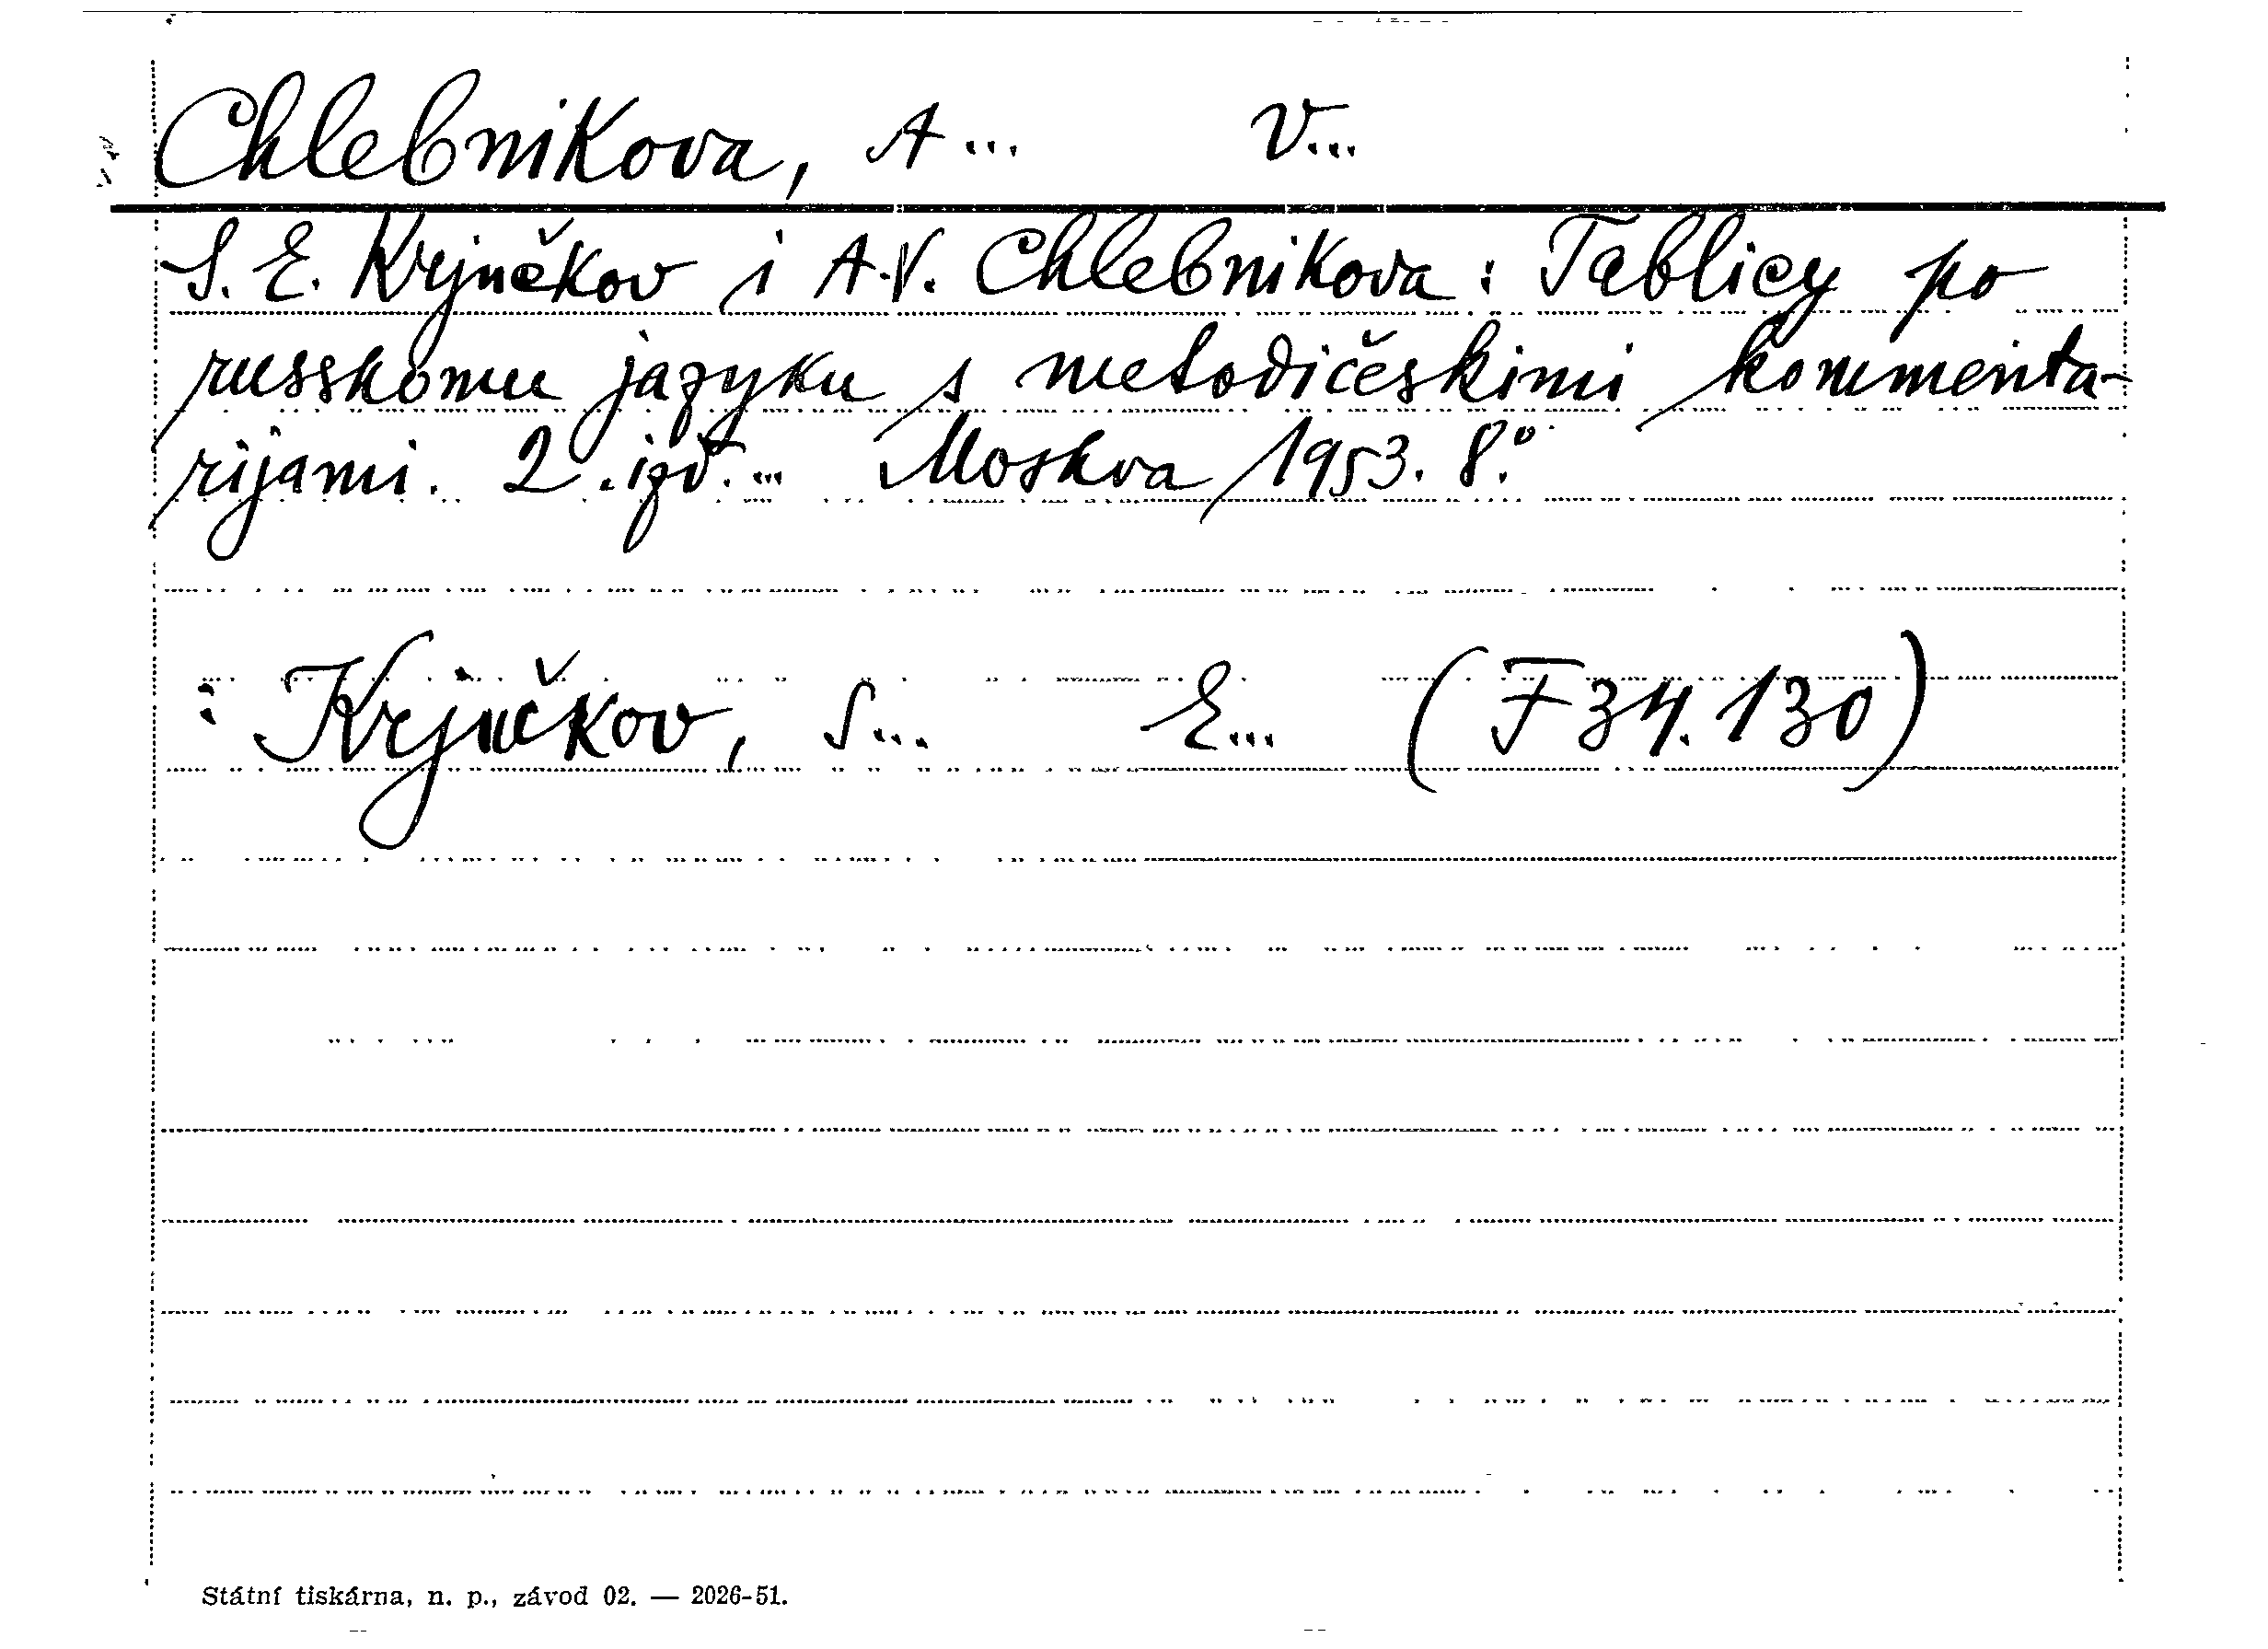 Chlebnikova, A... V...
S. E. Krjučkov i A. V. Chlebnikova: Tablicy po
russkomu jazyku s metodičeskimi kommenta-
rijami. 2. izd. ... Moskva 1953. 8.°
: Krjučkov, S... E... (F 34.130)
Státní tiskárna, n. p., závod 02. — 2026-51.